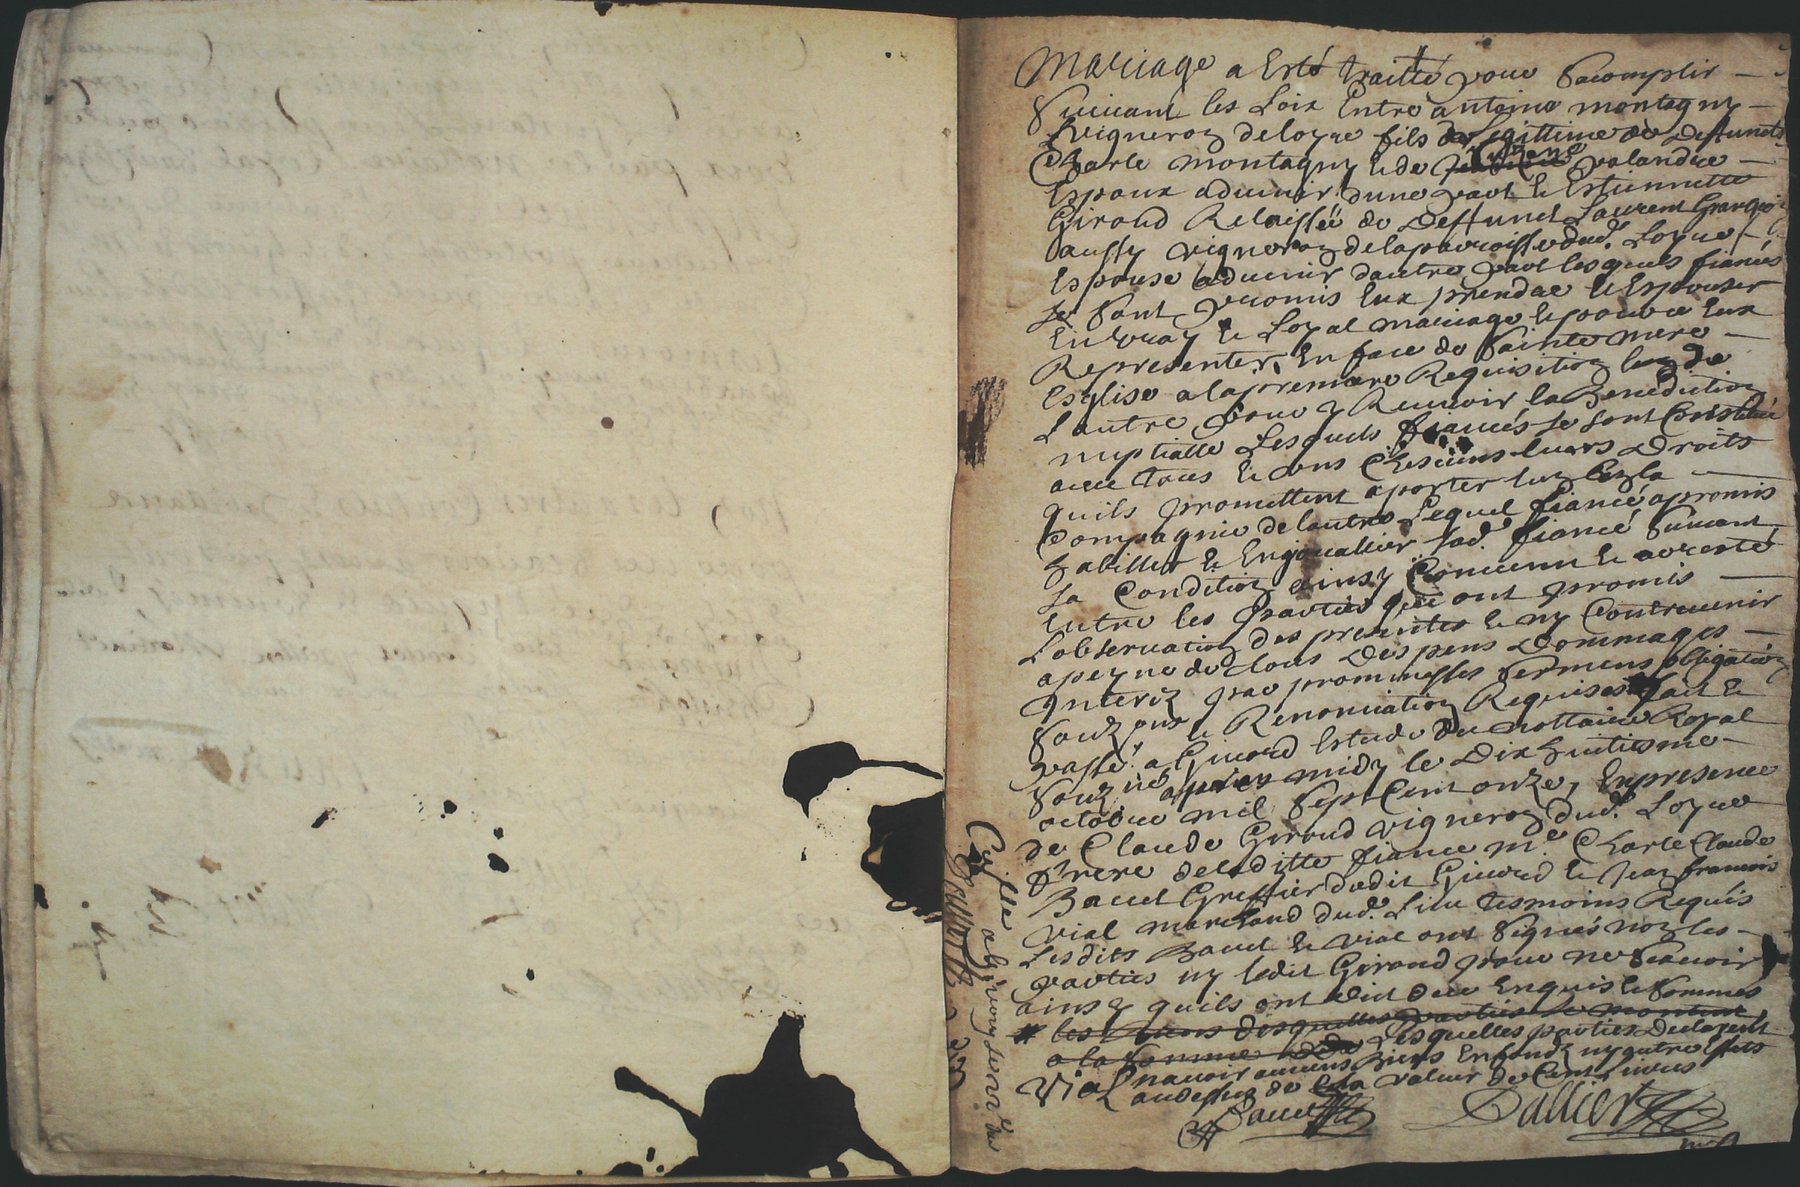 Mariage a Esté traitté pour Sacomplir
Suiuant les Loix Entre antoine montagny
Vigneron de loyre fils legittime de Deffuncts
Charle montagny & de valandre
Espoux aduenir dune part & Estiennette
Giroud Relaissée de Deffunct Laurent
aussy vigneron de la parroisse dud. Loyre
Espouse aduenir dautre part les quels fiancés
se sont promis Eux prendre & Espouser
En vray & Loyal mariage & pource Eux
Representer En face de Sainte mere
Esglise a la premiere Requisition lun de
Lautre pour y Receuoir la Benediction
nuptialle Lesquels fiancés se sont Constitué
auec tous & uns Chescuns leurs Droits
quils promettent aporter lun En la
Compagnie de lautre Lequel fiancé a promis
habiller & Enjouallier lad. fiancé Suiuant
sa Condition ainsy Conuenu & arresté
Entre les parties qui ont promis
Lobseruation des presentes & ny Contreuenir
a peyne de tous Despens Dommages
Interez par prommesses sermens obligation
Souz & Renonciation Requises fait &
passé a Giuord Estude du nottaire Royal
Souzné apres midy le Dix huitiesme
octobre mil Sept Cent onze, En presence
de Claude Giroud vigneron dud. Loyre
frere de laditte fiancé me Charle Claude
Bauet Greffier dudit Giuord & Jean francois
vial marchand dud. Lieu tesmoins Requis
Lesdits Bauet & vial ont signés non les
parties ny ledit Giroud pour ne scauoir
ainsy quils ont dit de ce Enquis & sommés
les biens desquelles parties se montent
a la somme de Lesquelles parties Declarent
nauoir aucuns Biens En fondz ny autre Effets
au dessus de la valeur de Cent liures
Vial
Bauet
Dallier